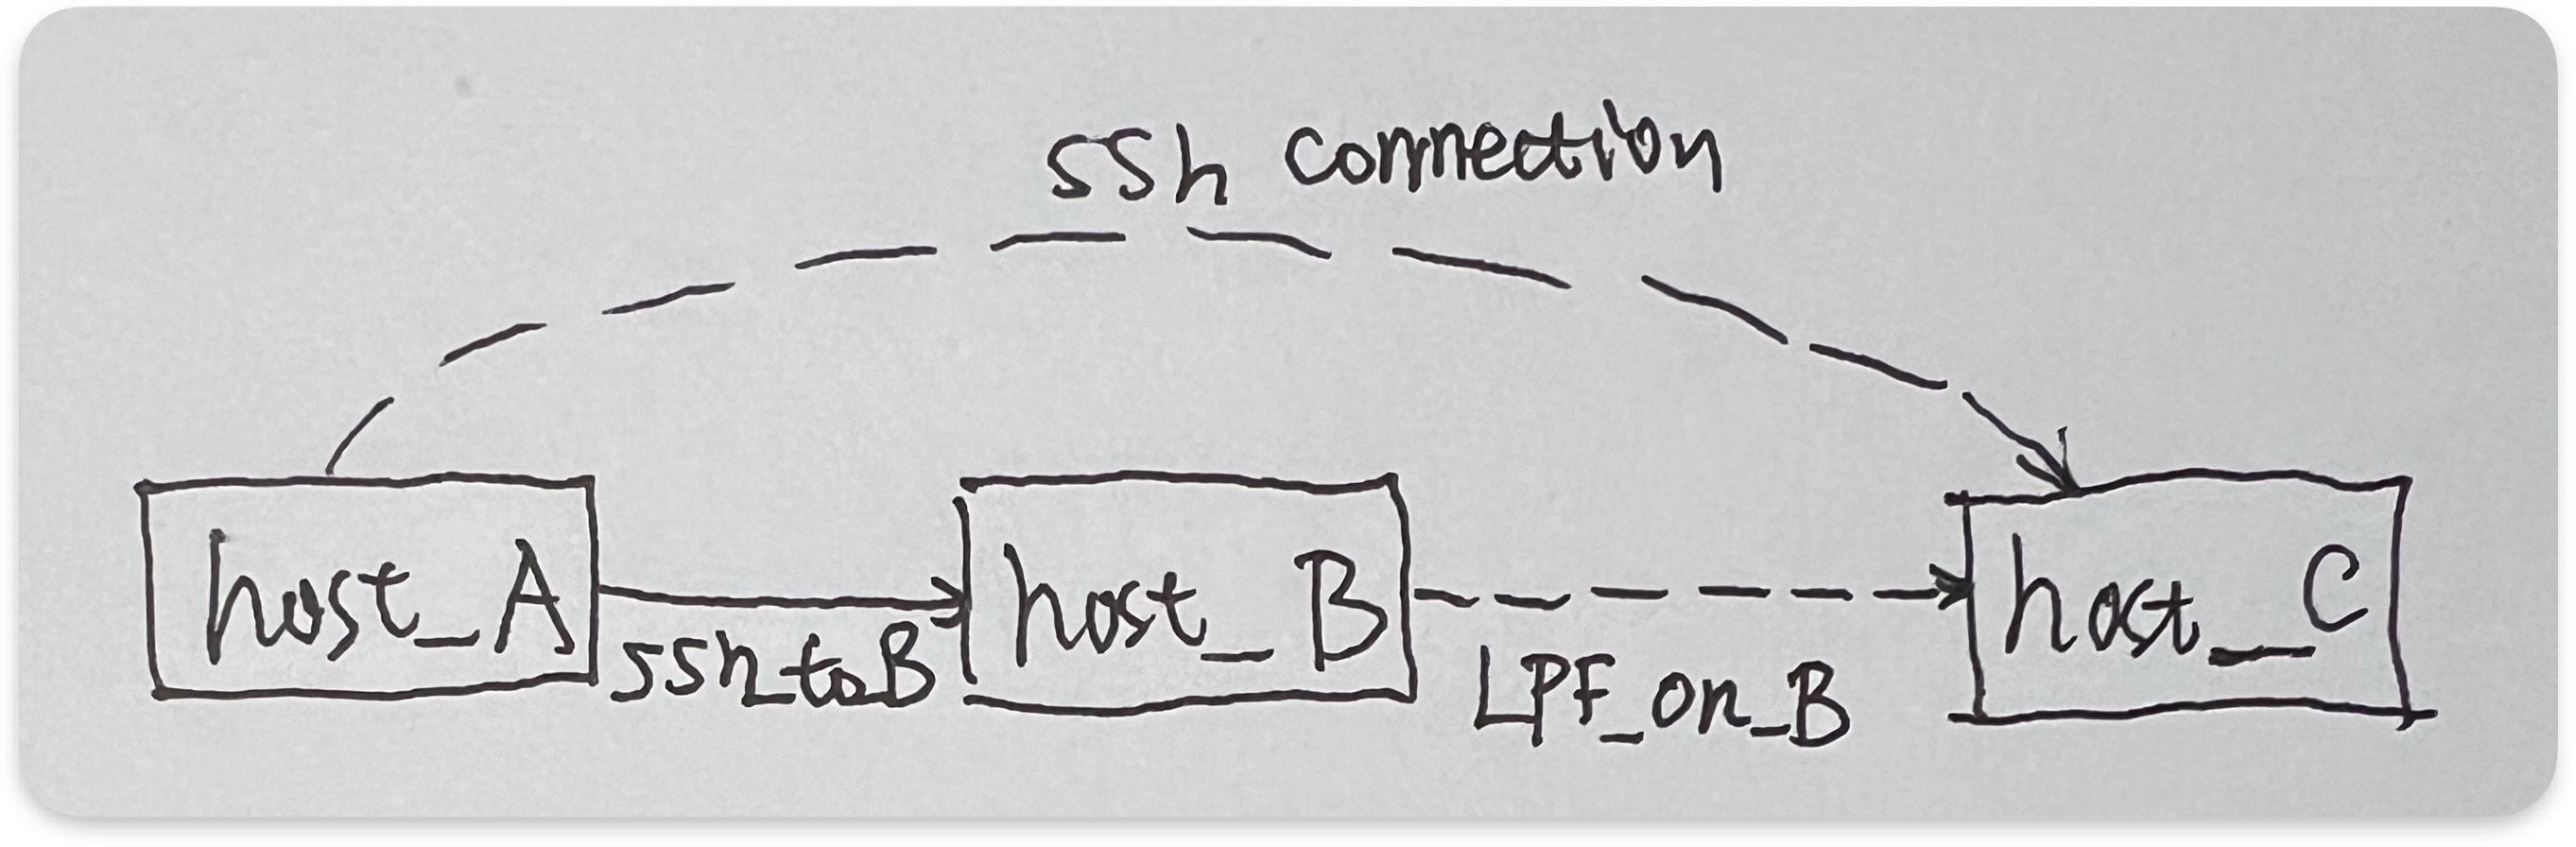 ssh connection
host_A
ssh_to_B
host_B
LPF_on_B
host_C